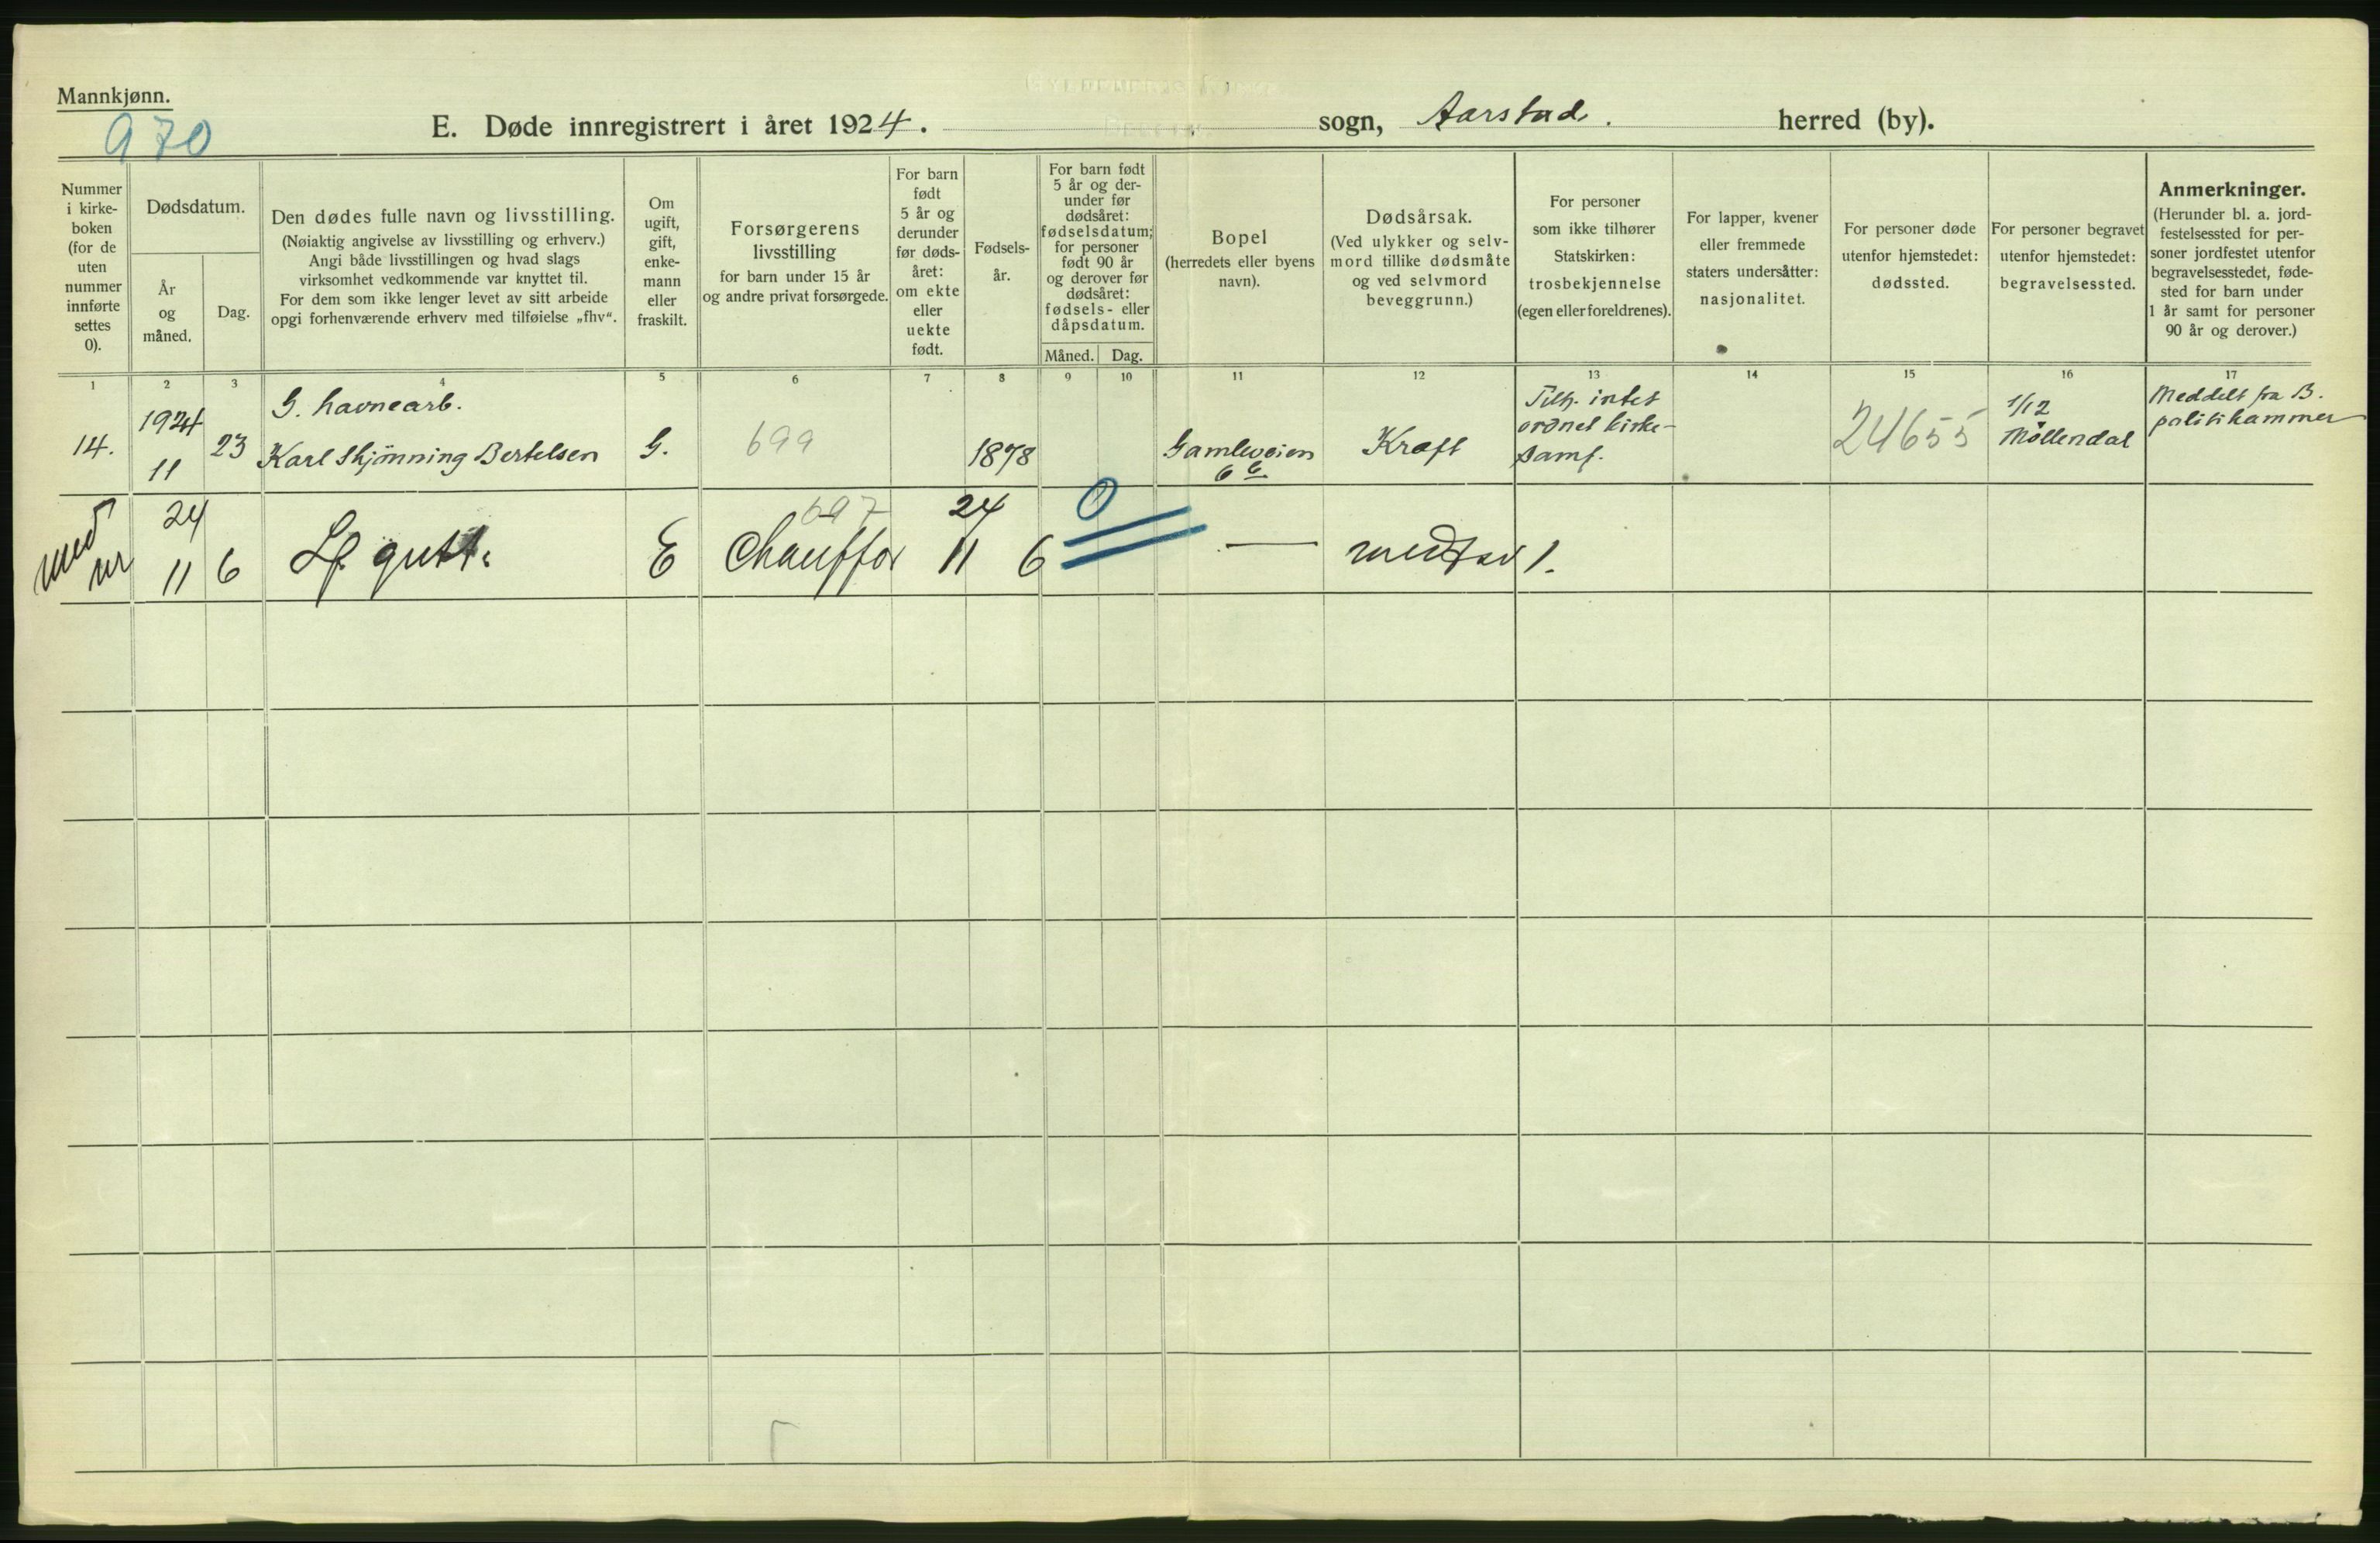 Mannkjønn.
970
E. Døde innregistrert i året 1924. sogn, Aarstad. herred (by).
Nummer
i kirke-
boken
(for de
uten
nummer
innførte
settes
0).
Dødsdatum.
År
og
måned.
Dag.
Den dødes fulle navn og livsstilling.
(Nøiaktig angivelse av livsstilling og erhverv.)
Angi både livsstillingen og hvad slags
virksomhet vedkommende var knyttet til.
For dem som ikke lenger levet av sitt arbeide
opgi forhenværende erhverv med tilføielse „fhv“.
Om
ugift,
gift,
enke-
mann
eller
fraskilt.
Forsørgerens
livsstilling
for barn under 15 år
og andre privat forsørgede.
For barn
født
5 år og
derunder
før døds-
året:
om ekte
eller
uekte
født.
Fødsels-
år.
For barn født
5 år og der-
under før
dødsåret:
fødselsdatum;
for personer
født 90 år
og derover før
dødsåret:
fødsels- eller
dåpsdatum.
Måned. Dag.
Bopel
(herredets eller byens
navn).
Dødsårsak.
(Ved ulykker og selv-
mord tillike dødsmåte
og ved selvmord
beveggrunn.)
For personer
som ikke tilhører
Statskirken:
trosbekjennelse
(egen eller foreldrenes).
For lapper, kvener
eller fremmede
staters undersåtter:
nasjonalitet.
For personer døde
utenfor hjemstedet:
dødssted.
For personer begravet
utenfor hjemstedet:
begravelsessted.
Anmerkninger.
(Herunder bl. a. jord-
festelsessted for per-
soner jordfestet utenfor
begravelsesstedet, føde-
sted for barn under
1 år samt for personer
90 år og derover.)
1 2 3 4 5 6 7 8 9 10 11 12 13 14 15 16 17
14.
1924
11
23
G. havnearb.
Karl Skjönning Bertelsen
G.
699
1878
Gamleveien
6 b
Kræft
Tilh. intet
ordnet kirke-
samf.
24655
1/12
Möllendal
Meddelt fra B.
politikammer
med
nr
24
11
6
Lf. gutt.
E
697
Chauffør
24
11
6
0
—
1.